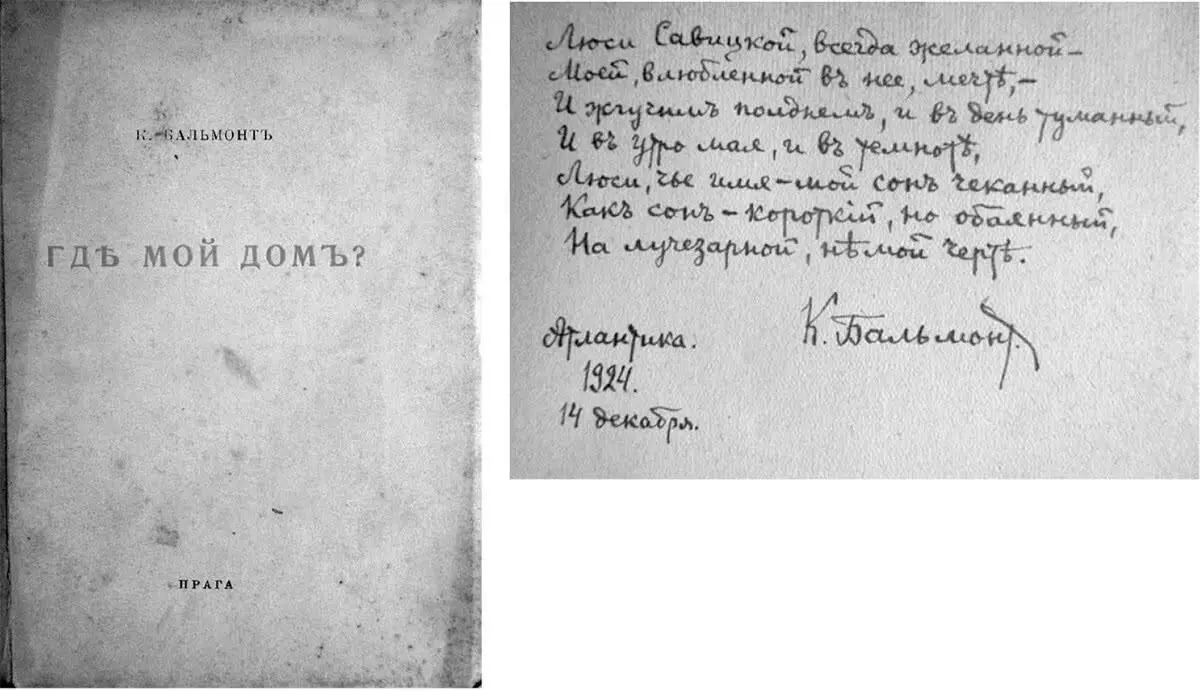 К. БАЛЬМОНТЪ
ГДѢ МОЙ ДОМЪ?
ПРАГА
Люси Савицкой, всегда желанной –
Моей, влюбленной въ нее, мечтѣ, –
И жгучимъ полднемъ, и въ день туманный,
И въ утро мая, и въ темнотѣ,
Люси, чье имя – мой сонъ чеканный,
Какъ сонъ – короткій, но обаянный,
На лучезарной, нѣмой чертѣ.
К. Бальмонт.
Атлантика.
1924.
14 декабря.